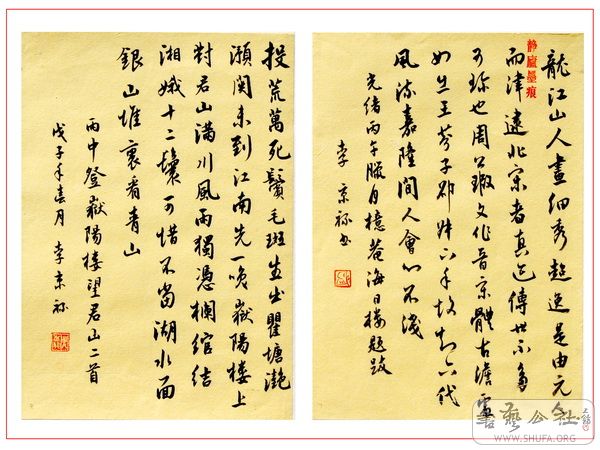 靜廬墨痕
龍江山人畫細秀超逸是由元人
而津逮北宋者真迹傳世不多
可珍也周公瑕文作晉宋體古澹處
如 王 子 下手故知六代
風流嘉隆間人會心不淺
光緒丙午臘月檍菴海日樓題跋
李京 书
投荒萬死鬢毛斑生出瞿塘灧
澦関未到江南先一笑嶽陽樓上
對君山滿川風雨獨憑欄綰結
湘娥十二鬟可惜不當湖水面
銀山堆裏看青山
雨中登嶽陽樓望君山二首
戊子年春月李京
書藝公社
WWW.SHUFA.ORG